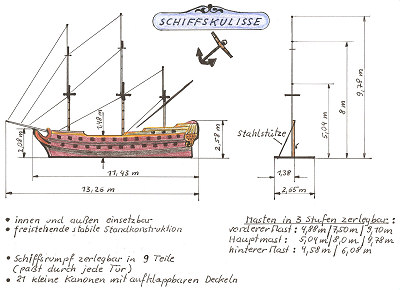 SCHIFFSKULISSE
9,78 m
8 m
5,04 m
Stahlstütze
2,08 m
1,48 m
2,58 m
1,38
2,65 m
11,43 m
13,26 m
• innen und außen einsetzbar
• freistehende stabile Standkonstruktion
• Schiffsrumpf zerlegbar in 9 Teile
(paßt durch jede Tür)
• 21 kleine Kanonen mit aufklappbaren Deckeln
Masten in 3 Stufen zerlegbar:
vorderer Mast: 4,88m/7,50m/9,10m
Hauptmast: 5,04m/8,0m/9,78m
hinterer Mast: 4,58m/6,08m